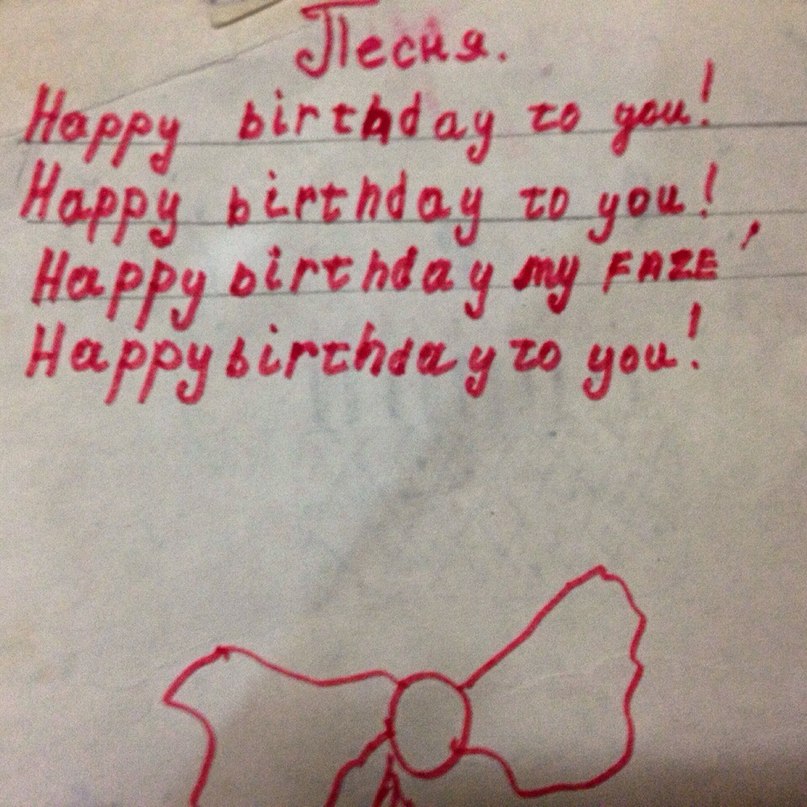 Песня.
Happy birthday to you!
Happy birthday to you!
Happy birthday my FAZE!
Happy birthday to you!